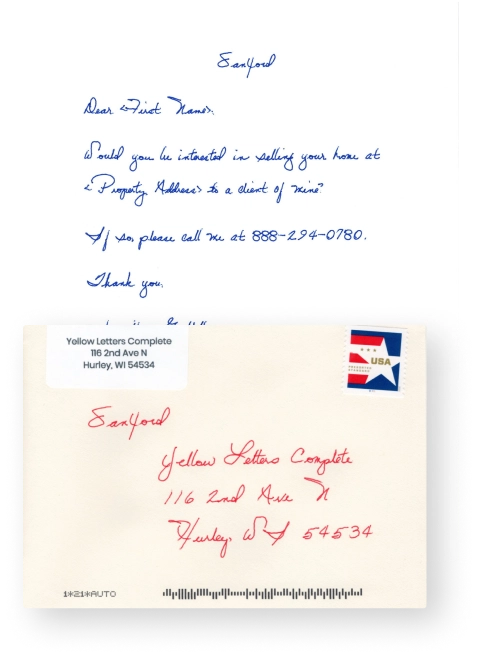 Sanford
Dear <First Name>,
Would you be interested in selling your home at
<Property Address> to a client of mine?
If so, please call me at 888-294-0780.
Thank you,
Yellow Letters Complete
116 2nd Ave N
Hurley, WI 54534
USA
Sanford
Yellow Letters Complete
116 2nd Ave N
Hurley, WI 54534
1*21*AUTO